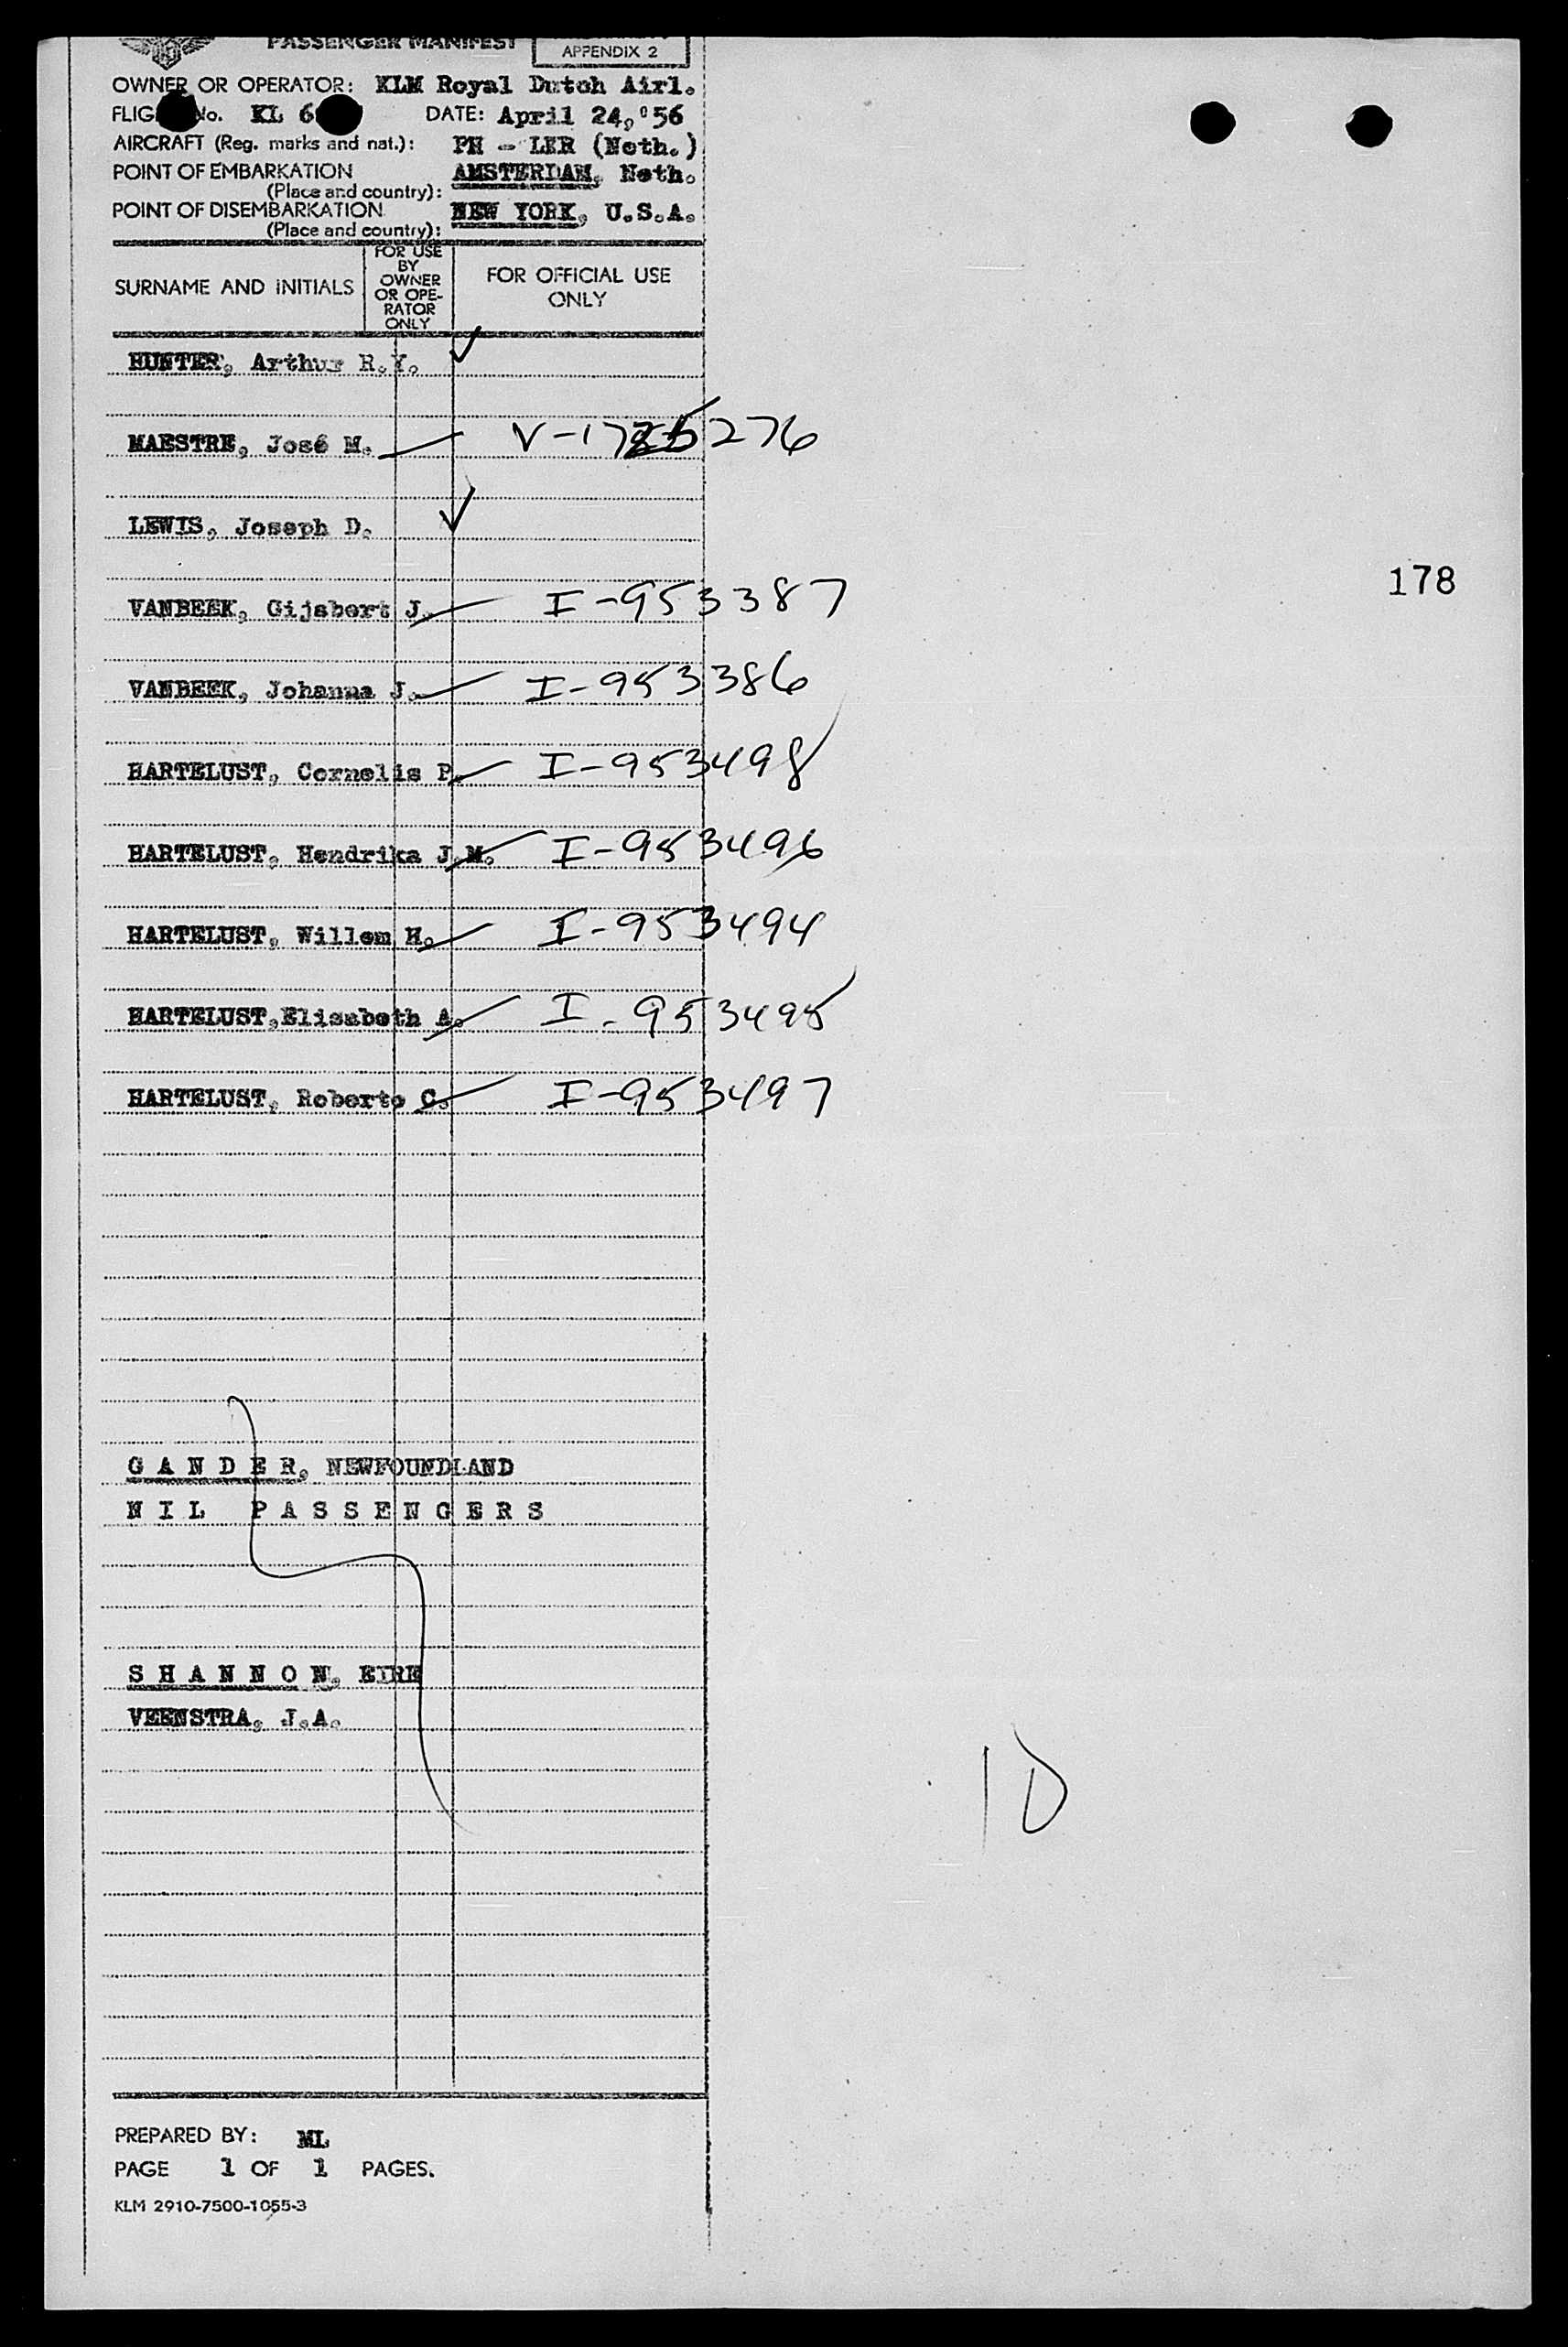 PASSENGER MANIFEST
APPENDIX 2
OWNER OR OPERATOR: KLM Royal Dutch Airl.
No. KL 6 DATE: April 24, '56
AIRCRAFT (Reg. marks and nat.): PH - LKR (Neth.)
POINT OF EMBARKATION
(Place and country): AMSTERDAM, Neth.
POINT OF DISEMBARKATION
(Place and country): NEW YORK, U.S.A.
SURNAME AND INITIALS
FOR USE
BY
OWNER
OR OPE-
RATOR
ONLY
FOR OFFICIAL USE
ONLY
HUNTER, Arthur R.Y.
MAESTRE, José M. 276
LEWIS, Joseph D.
178
VANBEEK, Gijsbert J. I-953387
VANBEEK, Johanna J. I-953386
HARTELUST, Cornelis P. I-953498
HARTELUST, Hendrika J.M. I-953496
HARTELUST, Willem H. I-953494
HARTELUST,Elisabeth A. I-953495
HARTELUST, Roberto C. I-953497
G A N D E R, NEWFOUNDLAND
N I L P A S S E N G E R S
S H A N N O N, EIRE
VEENSTRA, J.A.
10
PREPARED BY: ML
PAGE 1 OF 1 PAGES.
KLM 2910-7500-1055-3